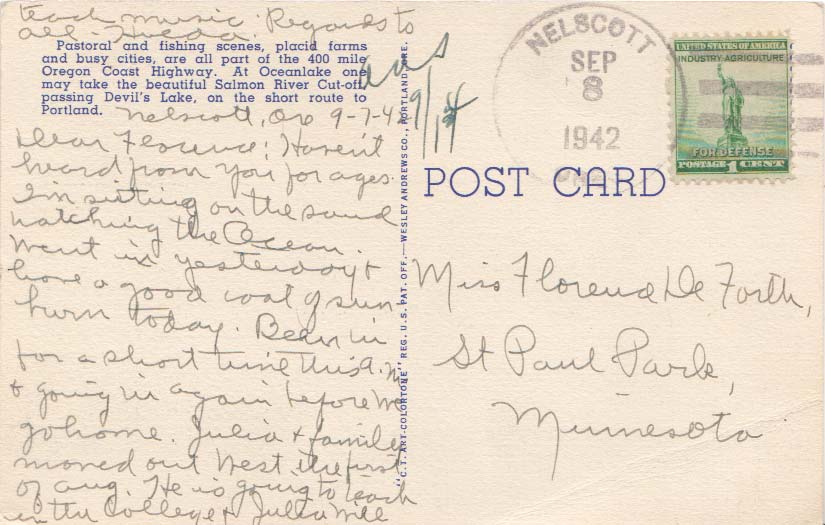 teach music. Regards to
all - Hveda.
Pastoral and fishing scenes, placid farms
and busy cities, are all part of the 400 mile
Oregon Coast Highway. At Oceanlake one
may take the beautiful Salmon River Cut-off,
passing Devil's Lake, on the short route to
Portland.
Nelscott, Ore 9-7-42
Dear Florence: Haven't
heard from you for ages.
I'm sitting on the sand
watching the Ocean.
Went in yesterday &
have a good coat of sun
burn today. Been in
for a short time this a.m
& going in again before we
go home. Julia & family
moved out West the first
of Aug. He is going to teach
in the College & Julia will
ans
9/14
"C.T. ART-COLORTONE" REG. U.S. PAT. OFF. — WESLEY ANDREWS CO., PORTLAND, ORE.
NELSCOTT
SEP
8
1942
ORE.
UNITED STATES OF AMERICA
INDUSTRY AGRICULTURE
FOR DEFENSE
POSTAGE 1 CENT
POST CARD
Miss Florence De Forth,
St Paul Park,
Minnesota